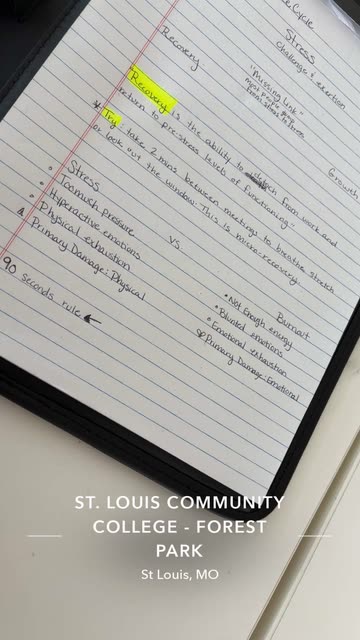 Cycle
Stress
challenge & exertion
"Missing Link"
most people
from stress to stress
Growth
Recovery
Recovery is the ability to detach from work and
return to pre-stress levels of functioning."
* Try: take 2 mins between meetings to breathe stretch
or look out the window. This is micro-recovery.
• Stress
• Too much pressure
• Hyperactive emotions
• Physical exhaustion
Primary Damage: Physical
vs.
Burnout
• Not Enough energy
• Blunted emotions
• Emotional exhaustion
Primary Damage: Emotional
90 seconds rule ←
ST. LOUIS COMMUNITY
COLLEGE - FOREST
PARK
St Louis, MO